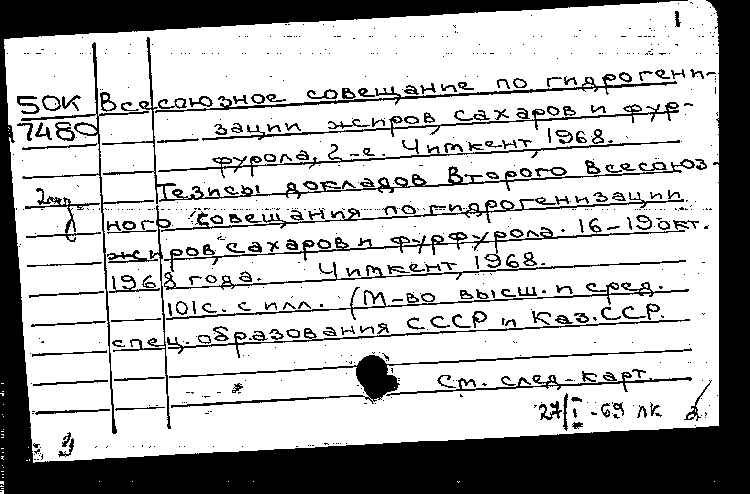 1
50К Всесоюзное совещание по гидрогени-
17480 зации жиров, сахаров и фур-
фурола, 2-е. Чимкент, 1968.
2 экз Тезисы докладов Второго Всесоюз-
ного совещания по гидрогенизации
жиров, сахаров и фурфурола. 16-19 окт.
1968 года. Чимкент, 1968.
101с. с илл. (М-во высш. и сред.
спец. образования СССР и Каз.ССР.
См. след. карт.
27/I-69 лк